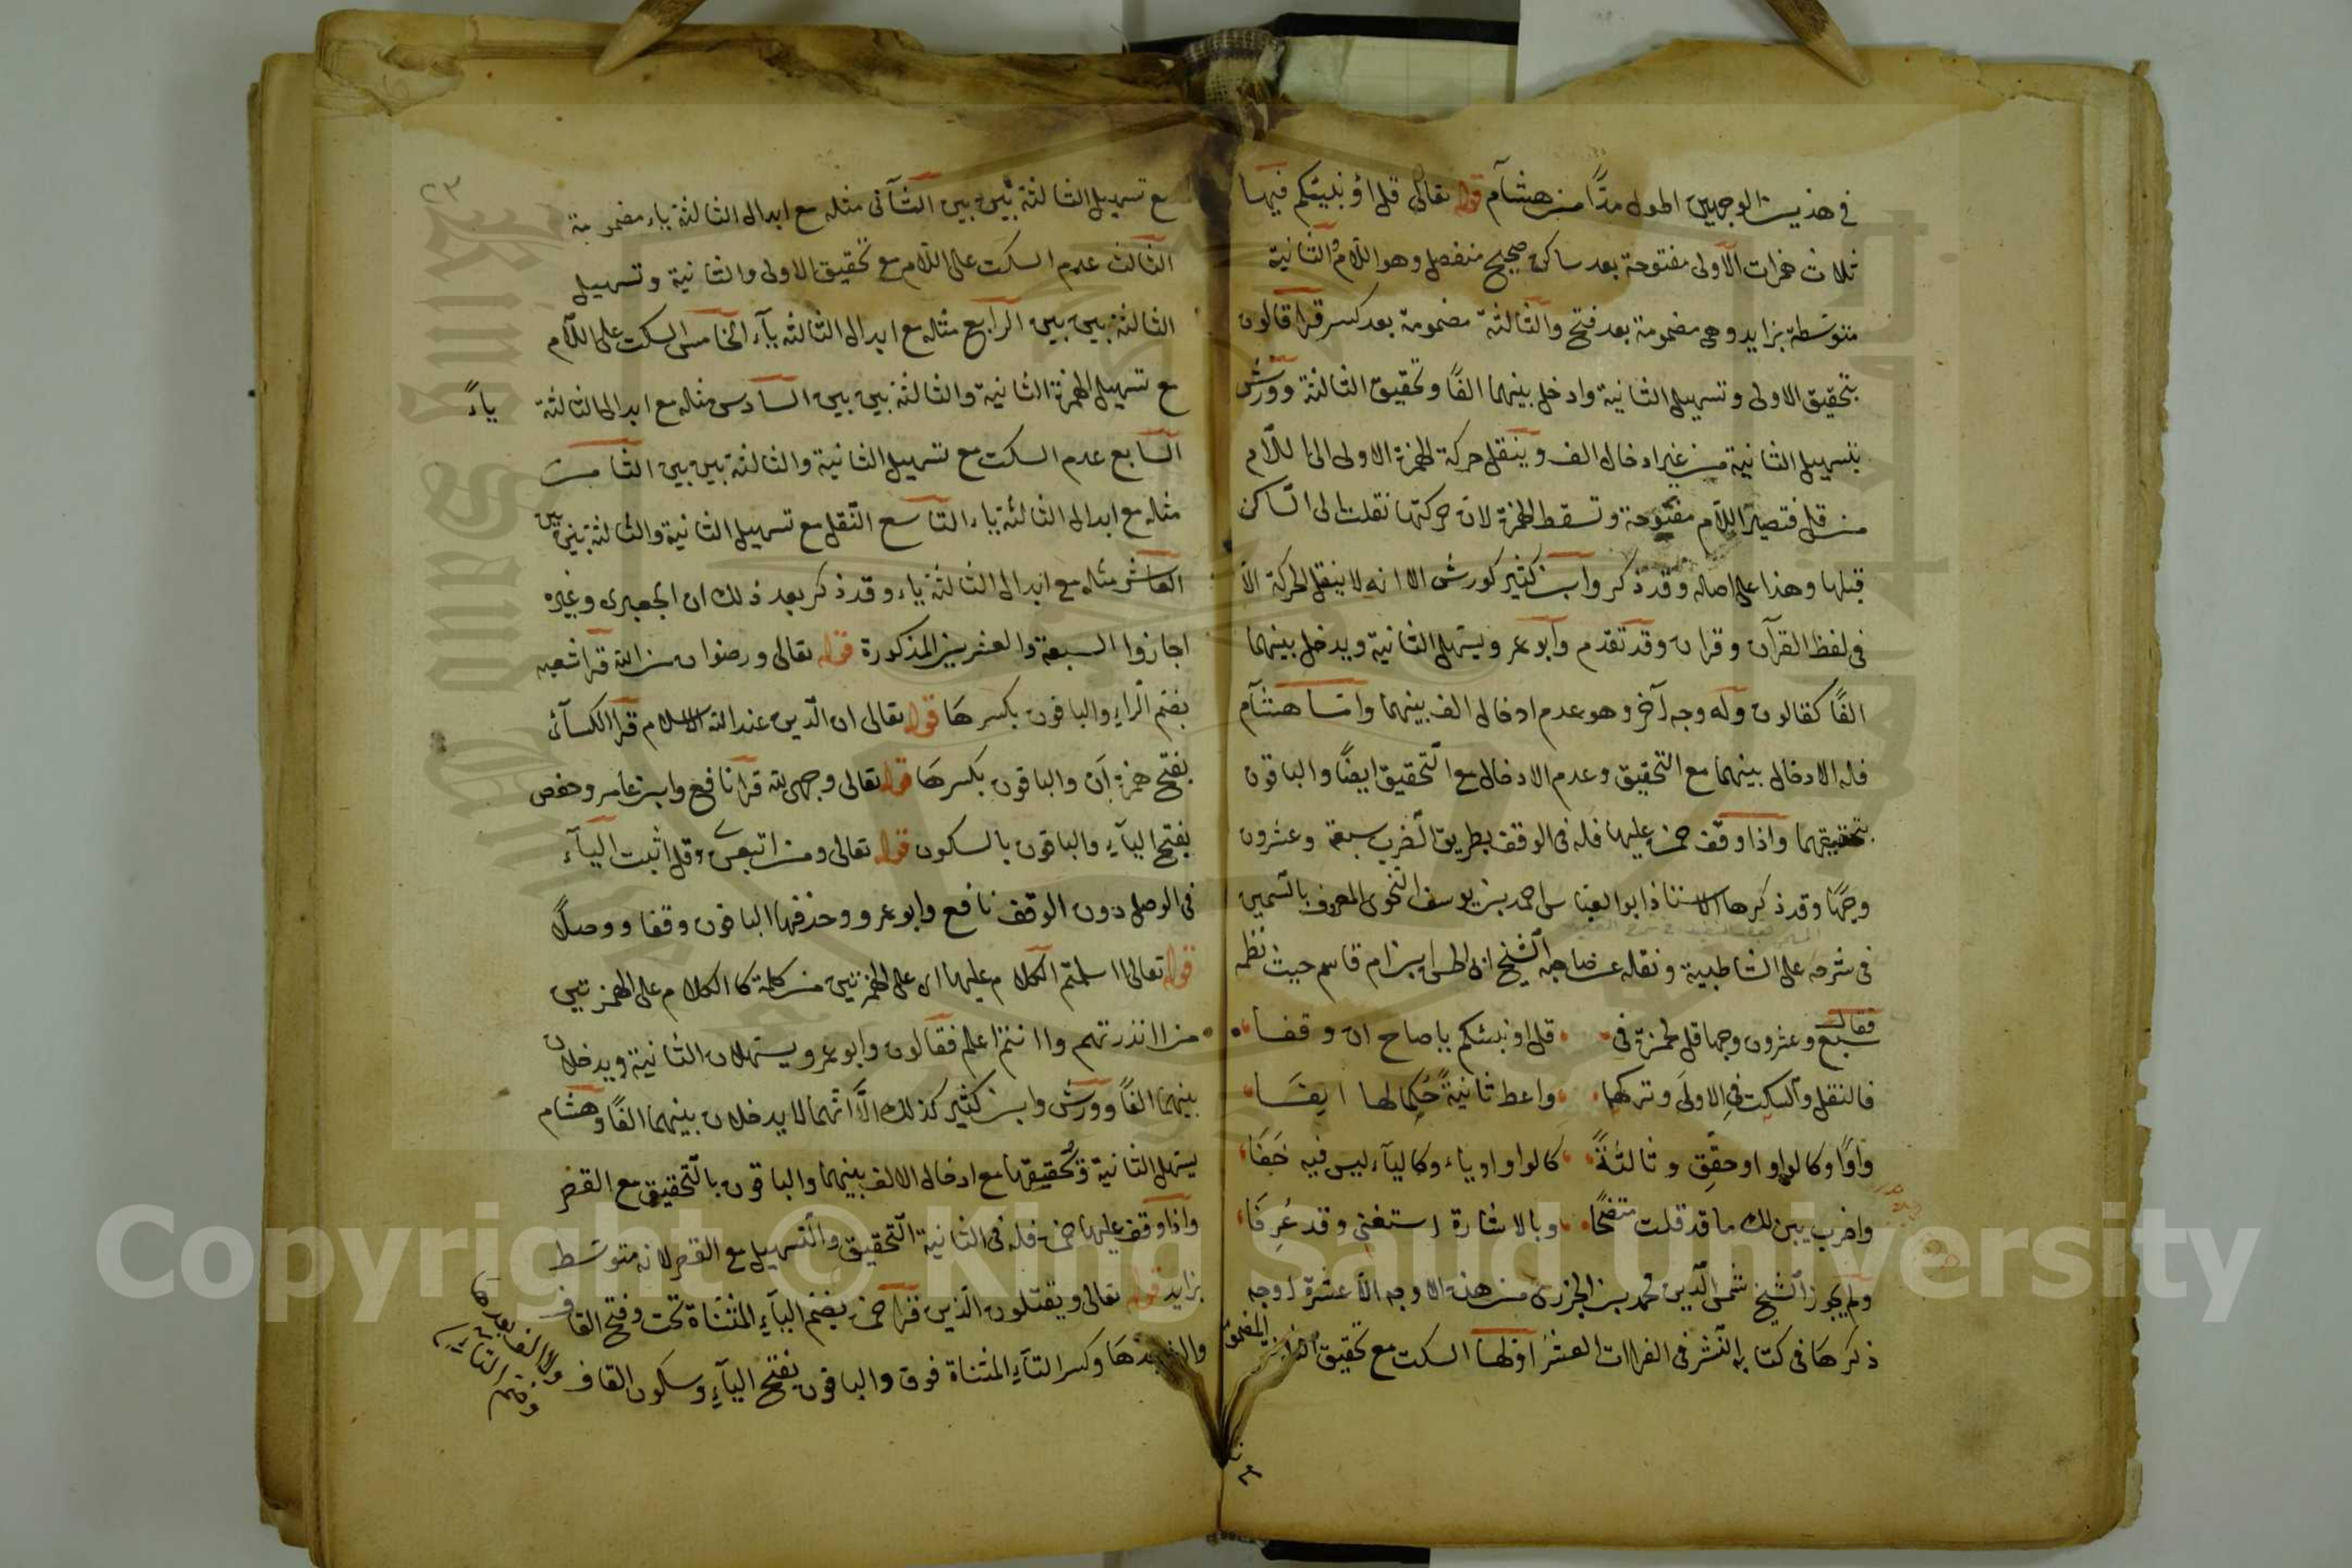 في هذين الوجهين اطول مدّا من هشام قوله تعالى قل اؤنبئكم فيها
ثلاث همزات الاولى مفتوحة بعد ساكن صحيح منفصل وهو اللام والثانية
متوسّطة بزايد وهي مضمومة بعد فتح والثالثة مضمومة بعد كسر قرا قالون
بتحقيق الاولى وتسهيل الثانية وادخل بينهما الفًا وتحقيق الثالثة وورش
بتسهيل الثانية من غير ادخال الف وينقل حركة الهمزة الاولى الى اللام
من قل فتصير اللام مفتوحة وتسقط الهمزة لان حركتها نقلت الى الساكن
قبلها وهذا على اصله وقد ذكر وابن كثير كورش الا انه لا ينقل الحركة الا
في لفظ القرآن وقران وقد تقدم وابو عمر ويسهل الثانية ويدخل بينهما
الفًا كقالون وله وجه آخر وهو عدم ادخال الف بينهما وامّا هشام
فله الادخال بينهما مع التحقيق وعدم الادخال مع التحقيق ايضًا والباقون
بتحقيقهما واذا وقف حمزة عليها فله في الوقف بطريق الضرب سبعة وعشرون
وجهًا وقد ذكرها الاستاذ ابو العباس احمد بن يوسف النحوي المعروف بالسمين
في شرحه على الشاطبية ونقله عن صاحبه الشيخ ابي الحسن ابن ام قاسم حيث نظمه
فقال
سبع وعشرون وجها قل لحمزة في قل اؤنبئكم يا صاح ان وقفا
فالنقل والسكت في الاولى وتركهما واعط ثانيةً حُكما لها ايضًا
واوًا وكالواو او حقّق وثالثةً كالواو او ياء وكالياء ليس فيه خَفَا
واضرب يبن لك ما قد قلت متضحًا وبالاشارة استغنى وقد عُرِفَا
ولم يجوز الشيخ شمس الدين محمد بن الجزري من هذه الاوجه الا عشرة اوجه
ذكرها في كتابه النشر في القراات العشر اولها السكت مع تحقيق الثانية المضمومة
٢٣
مع تسهيل الثالثة بين بين الثاني مثله مع ابدال الثالثة ياء مضمومة
الثالث عدم السكت على اللام مع تحقيق الاولى والثانية وتسهيل
الثالثة بين بين الرابع مثله مع ابدال الثالثة ياء الخامس السكت على اللام
مع تسهيل الهمزة الثانية والثالثة بين بين السادس مثله مع ابدال الثالثة ياءً
السابع عدم السكت مع تسهيل الثانية والثالثة بين بين الثامن
مثله مع ابدال الثالثة ياء التاسع النقل مع تسهيل الثانية والثالثة بين بين
العاشر مثله مع ابدال الثالثة ياء وقد ذكر بعد ذلك ان الجعبري وغيره
اجازوا السبعة والعشرين المذكورة قوله تعالى ورضوان من الله قرا شعبه
بضم الراء والباقون بكسرها قوله تعالى ان الدين عند الله الاسلام قرا الكسائي
بفتح همزة أن والباقون بكسرها قوله تعالى وجهي لله قرا نافع وابن عامر وحفص
بفتح الياء والباقون بالسكون قوله تعالى ومن اتبعني وقل اثبت الياء
في الوصل دون الوقف نافع وابو عمرو وحذفها الباقون وقفا ووصلًا
قوله تعالى ااسلمتم الكلام عليها اي على الهمزتين من كلمة كالكلام على الهمزتين
من اانذرتهم واانتم اعلم فقالون وابو عمرو يسهلان الثانية ويدخلان
بينهما الفًا وورش وابن كثير كذلك الّا انهما لا يدخلان بينهما الفًا وهشام
يسهل الثانية وتحقيقها مع ادخال الالف بينهما والباقون بالتحقيق مع القصر
واذا وقف عليها حمزة فله في الثانية التحقيق والتسهيل مع القصر لانه متوسط
بزايد قوله تعالى ويقتلون الذين قرا حمزة بضم الياء المثناة تحت وفتح القاف
والف بعدها وكسر التاء المثناة فوق والباقون بفتح الياء وسكون القاف
ولا الف بعدها
وضم التاء
Copyright © King Saud University